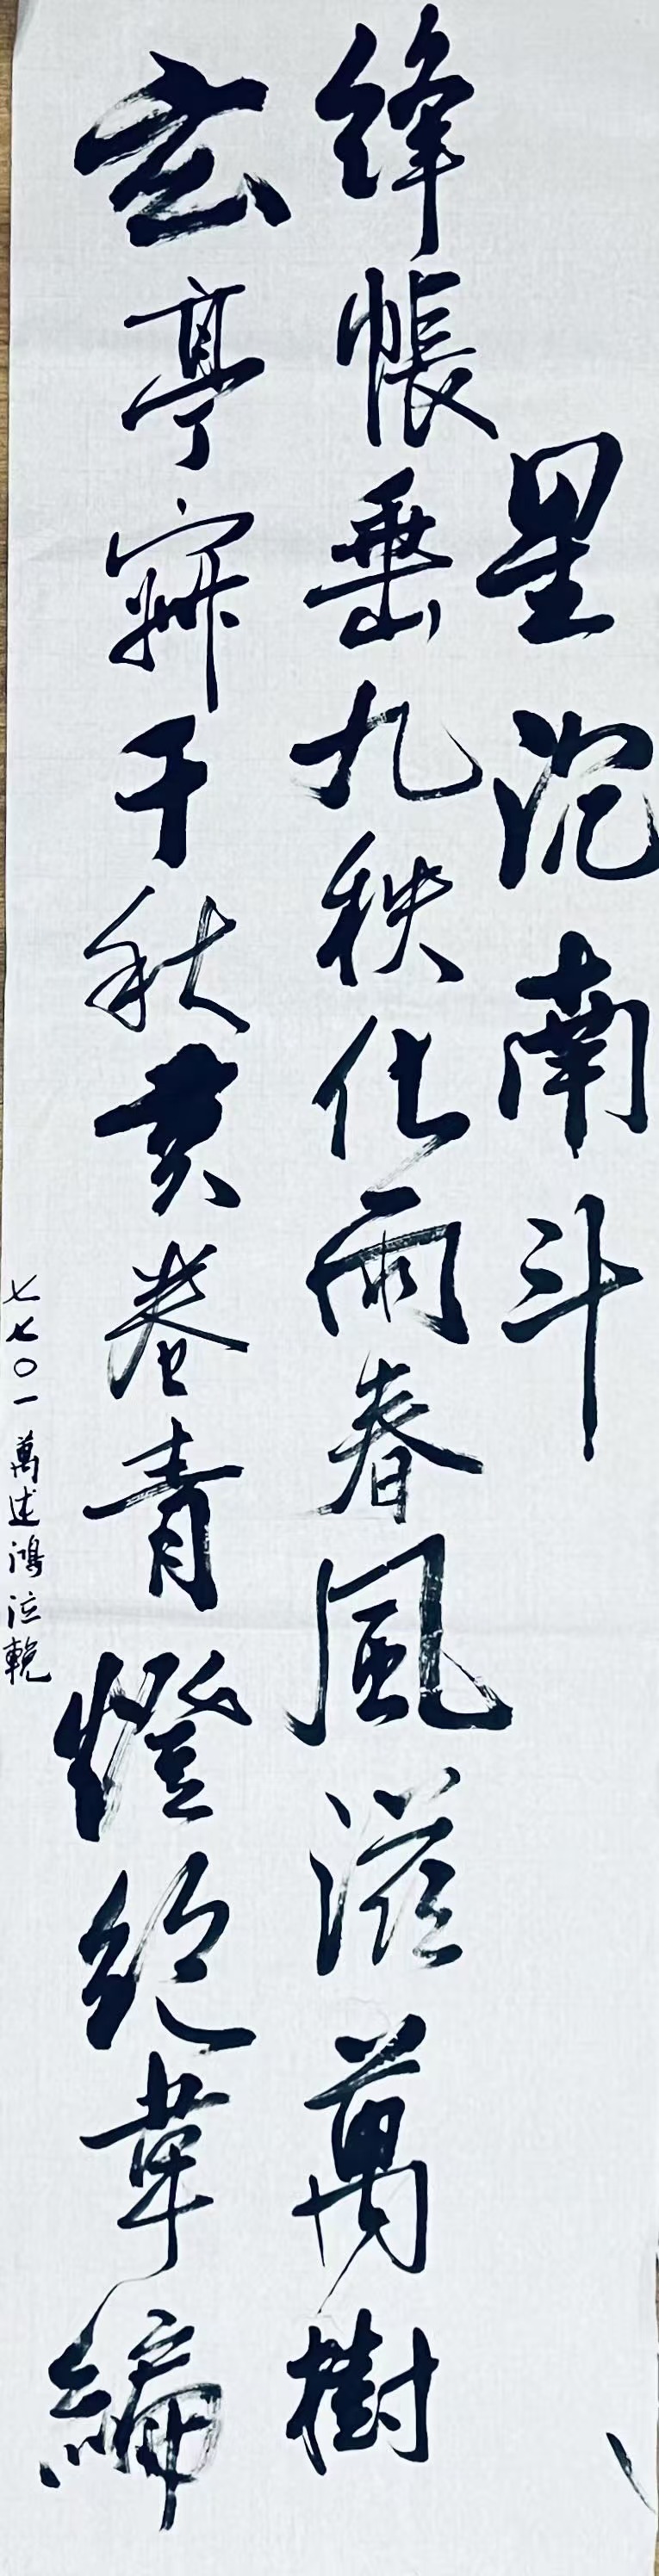 星沉南斗
絳帳垂九秩化雨春風滋萬樹
玄亭寂千秋黄卷青燈絕韋編
七七〇一萬述鴻泣輓